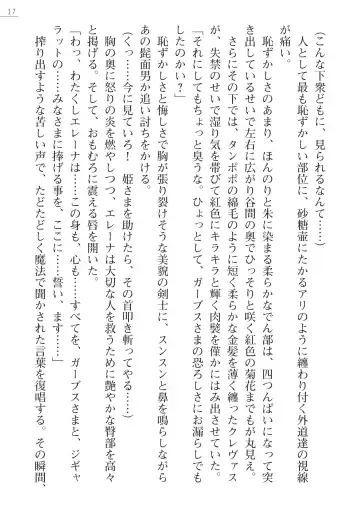 17
(こんな下衆どもに、見られるなんて……)
　人として最も恥ずかしい部位に、砂糖壺にたかるアリのように纏わり付く外道達の視線
が痛い。
　恥ずかしさのあまり、ほんのりと朱に染まる柔らかなでん部は、四つんばいになって突
き出しているせいで左右に広がり谷間の奥でひっそりと咲く紅色の菊花までもが丸見え。
　さらにその下では、タンポポの綿毛のように短く柔らかな金髪を薄く纏ったクレヴァス
が、失禁のせいで湿り気を帯びて紅色にキラキラと輝く肉襞を僅かにはみ出させていた。
「それにしてもちょっと臭うな。ひょっとして、ガーブスさまの恐ろしさにお漏らしでも
したのかい？」
　恥ずかしさと悔しさで胸が張り裂けそうな美貌の剣士に、スンスンと鼻を鳴らしながら
あの髭面男が追い討ちをかける。
(くっ……今に見ていろ！　姫さまを助けたら、その首叩き斬ってやる……)
　胸の奥に怒りの炎を燃やしつつ、エレーナは大切な人を救うために艶やかな臀部を高々
と掲げる。そして、おもむろに震える唇を開いた。
「わっ、わたくしエレーナは……この身も、心も……すっ、すべて、ガーブスさまと、ジギャ
ラットの……みなさまに捧げる事を、ここに……誓い、ます……」
　搾り出すような苦しい声で、たどたどしく魔法で聞かされた言葉を復唱する。その瞬間、